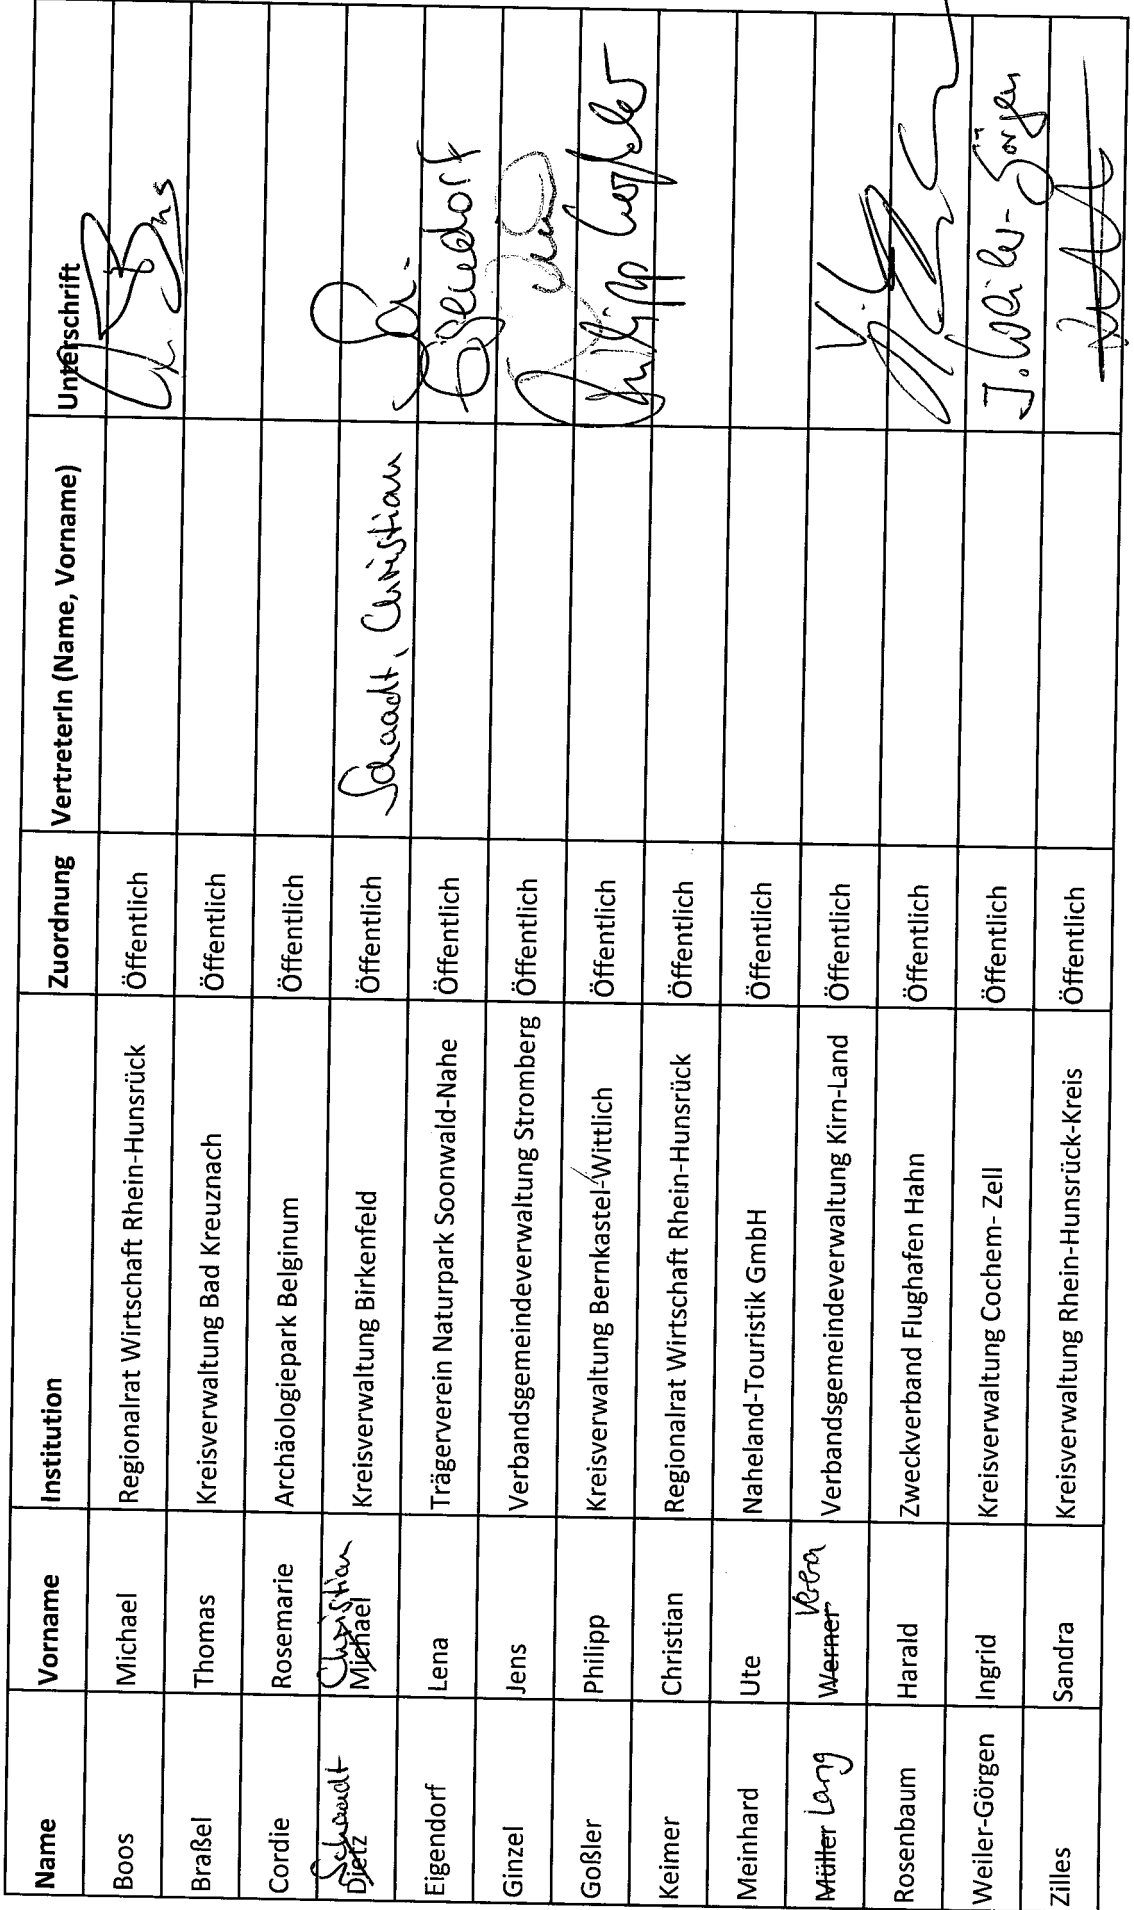 Name Vorname Institution Zuordnung VertreterIn (Name, Vorname) Unterschrift
Boos Michael Regionalrat Wirtschaft Rhein-Hunsrück Öffentlich
Braßel Thomas Kreisverwaltung Bad Kreuznach Öffentlich
Cordie Rosemarie Archäologiepark Belginum Öffentlich
Dietz Schaadt Michael Christian Kreisverwaltung Birkenfeld Öffentlich Schaadt, Christian
Eigendorf Lena Trägerverein Naturpark Soonwald-Nahe Öffentlich Eigendorf
Ginzel Jens Verbandsgemeindeverwaltung Stromberg Öffentlich
Goßler Philipp Kreisverwaltung Bernkastel-Wittlich Öffentlich Philipp Goßler
Keimer Christian Regionalrat Wirtschaft Rhein-Hunsrück Öffentlich
Meinhard Ute Naheland-Touristik GmbH Öffentlich
Müller Lang Werner Vera Verbandsgemeindeverwaltung Kirn-Land Öffentlich
Rosenbaum Harald Zweckverband Flughafen Hahn Öffentlich
Weiler-Görgen Ingrid Kreisverwaltung Cochem- Zell Öffentlich J. Weiler-Görgen
Zilles Sandra Kreisverwaltung Rhein-Hunsrück-Kreis Öffentlich